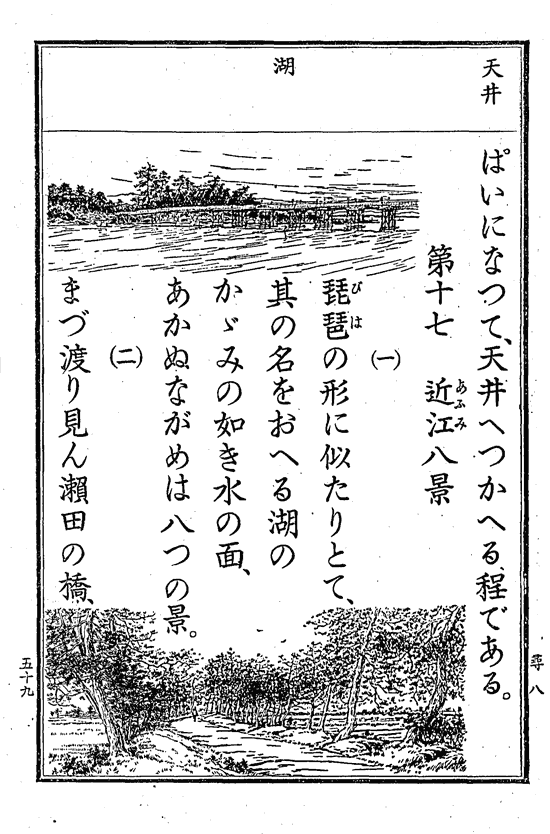 天井
湖
ぱいになつて、天井へつかへる程である。
第十七 近江八景
あふみ
(一)
琵琶の形に似たりとて、
びは
其の名をおへる湖の
かゞみの如き水の面、
あかぬながめは八つの景。
(二)
まづ渡り見ん瀬田の橋、
尋八
五十九